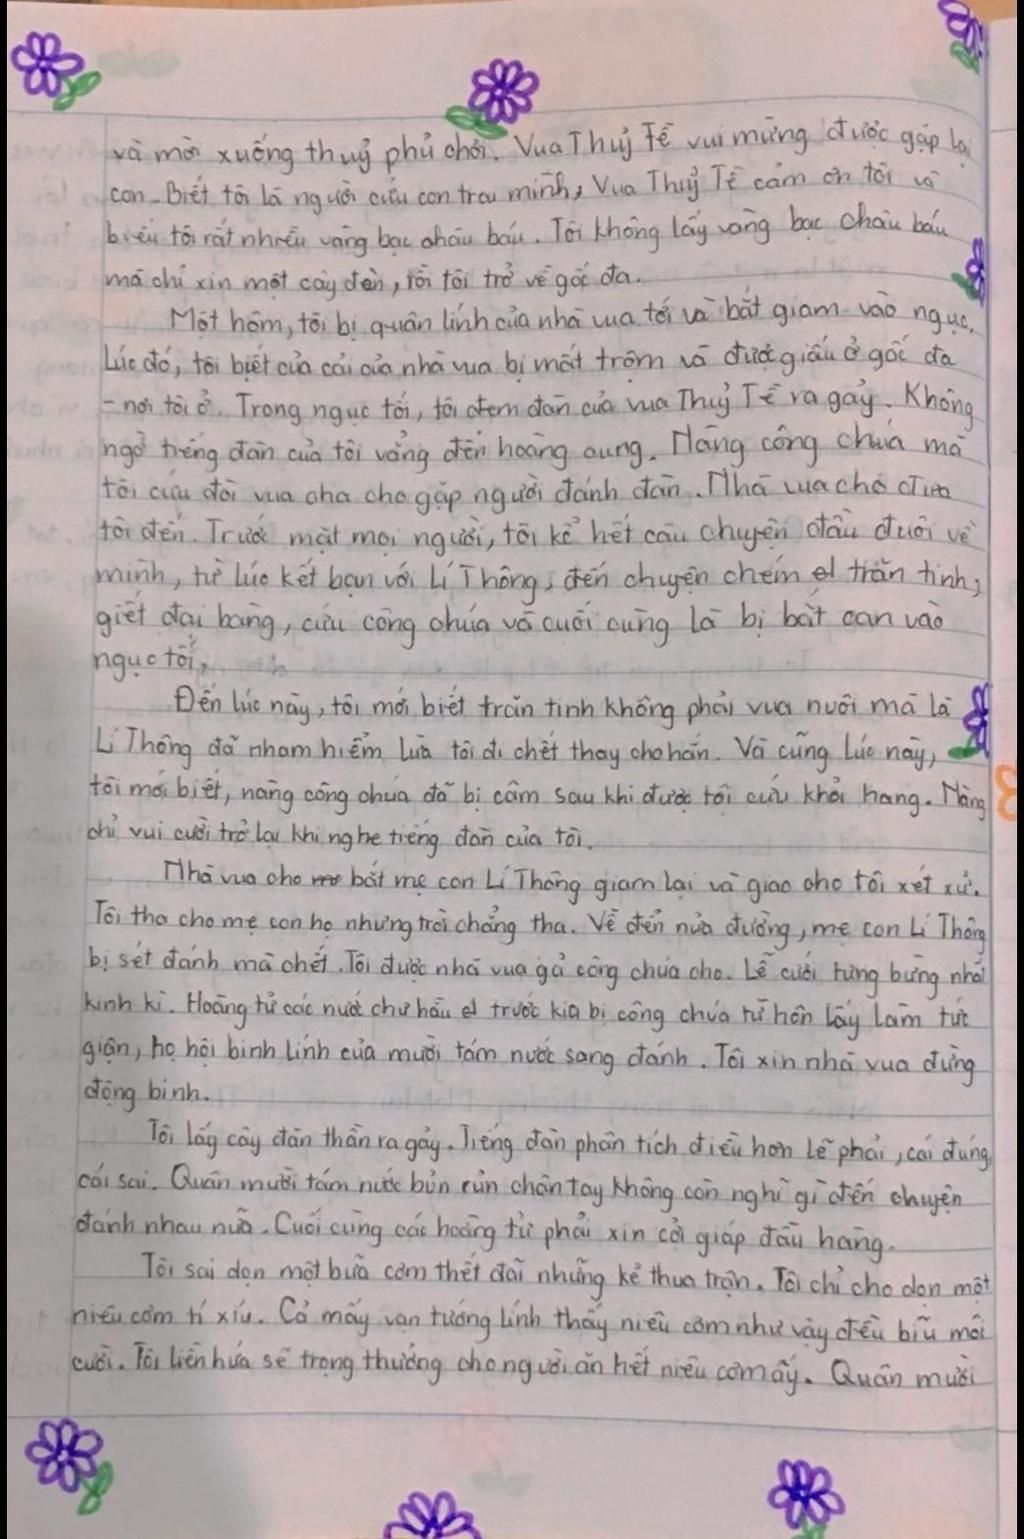 và mời xuống thuỷ phủ chơi. Vua Thuỷ Tề vui mừng được gặp lại
con. Biết tôi là người cứu con trai mình, Vua Thuỷ Tề cảm ơn tôi và
biếu tôi rất nhiều vàng bạc châu báu. Tôi không lấy vàng bạc châu báu
mà chỉ xin một cây đàn, rồi tôi trở về gốc đa.
Một hôm, tôi bị quân lính của nhà vua tới và bắt giam vào ngục.
Lúc đó, tôi biết của cải của nhà vua bị mất trộm và được giấu ở gốc đa
- nơi tôi ở. Trong ngục tối, tôi đem đàn của vua Thuỷ Tề ra gảy. Không
ngờ tiếng đàn của tôi vẳng đến hoàng cung. Nàng công chúa mà
tôi cứu đòi vua cha cho gặp người đánh đàn. Nhà vua cho đưa
tôi đến. Trước mặt mọi người, tôi kể hết câu chuyện đầu đuôi về
mình, từ lúc kết bạn với Lí Thông, đến chuyện chém trăn tinh,
giết đại bàng, cứu công chúa và cuối cùng là bị bắt oan vào
ngục tối.
Đến lúc này, tôi mới biết trăn tinh không phải vua nuôi mà là
Lí Thông đã nham hiểm lừa tôi đi chết thay cho hắn. Và cũng lúc này,
tôi mới biết, nàng công chúa đã bị câm sau khi được tôi cứu khỏi hang. Nàng
chỉ vui cười trở lại khi nghe tiếng đàn của tôi.
Nhà vua cho bắt mẹ con Lí Thông giam lại và giao cho tôi xét xử.
Tôi tha cho mẹ con họ nhưng trời chẳng tha. Về đến nửa đường, mẹ con Lí Thông
bị sét đánh mà chết. Tôi được nhà vua gả công chúa cho. Lễ cưới tưng bừng nhất
kinh kì. Hoàng tử các nước chư hầu trước kia bị công chúa từ hôn lấy làm tức
giận, họ hội binh lính của mười tám nước sang đánh. Tôi xin nhà vua đừng
động binh.
Tôi lấy cây đàn thần ra gảy. Tiếng đàn phân tích điều hơn lẽ phải, cái đúng,
cái sai. Quân mười tám nước bủn rủn chân tay không còn nghĩ gì đến chuyện
đánh nhau nữa. Cuối cùng các hoàng tử phải xin cởi giáp đầu hàng.
Tôi sai dọn một bữa cơm thết đãi những kẻ thua trận. Tôi chỉ cho dọn một
niêu cơm tí xíu. Cả mấy vạn tướng lính thấy niêu cơm như vậy đều bĩu môi
cười. Tôi liền hứa sẽ trọng thưởng cho người ăn hết niêu cơm ấy. Quân mười